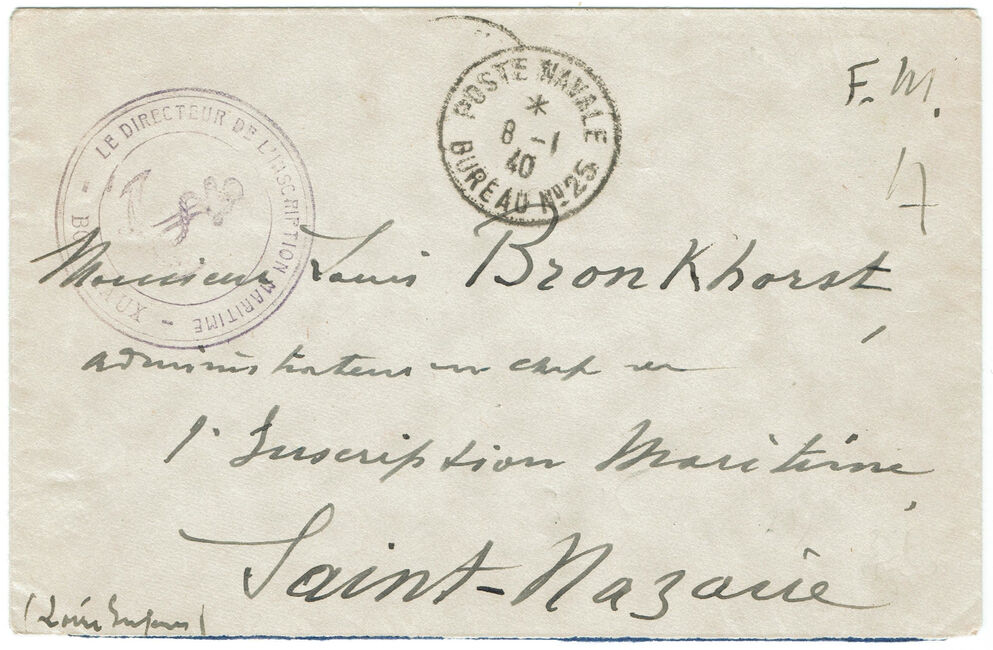 POSTE NAVALE
*
8 -1
40
BUREAU Nº 25
F. M.
LE DIRECTEUR DE L'INSCRIPTION MARITIME
- BO UX -
Monsieur Louis Bronkhorst,
administrateur en chef de
l'Inscription Maritime,
Saint-Nazaire
(Loire Infre)